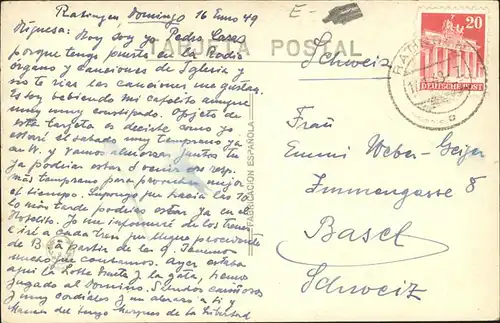 Ratingen, Domingo 16 Enero 49
E-
TARJETA POSTAL
Hoy soy yo Pedro
porque tengo puesta en la Radio
organo y canciones de Iglesia y
no te rias las canciones me gustan.
Estoy bebiendo mi cafelito aunque
muy muy constipado. Objeto de
esta tarjeta es decirte como yo
estaré el sabado muy temprano ya
en W. y vamos almorzar juntos tu
ya podrias estar
mas temprano para
el tiempo. Supongo que hacia las 10
lo más tarde podrias estar ya en
Jo me informaré de los trenes
e iré a cada tren que llegue procedente
de B a partir de las 9. Tenemos
mucho que contarnos. Ayer estaba
aqui la Lotte y la gata, hemos
jugado al Domino.
y muy cordiales y un abrazo a ti y
Marqués de la Libertad
FABRICACION ESPAÑOLA
Schweiz
20
DEUTSCHE POST
RATINGEN
Frau
Emmi Weber-Geiger
Immengasse 8
Basel
Schweiz